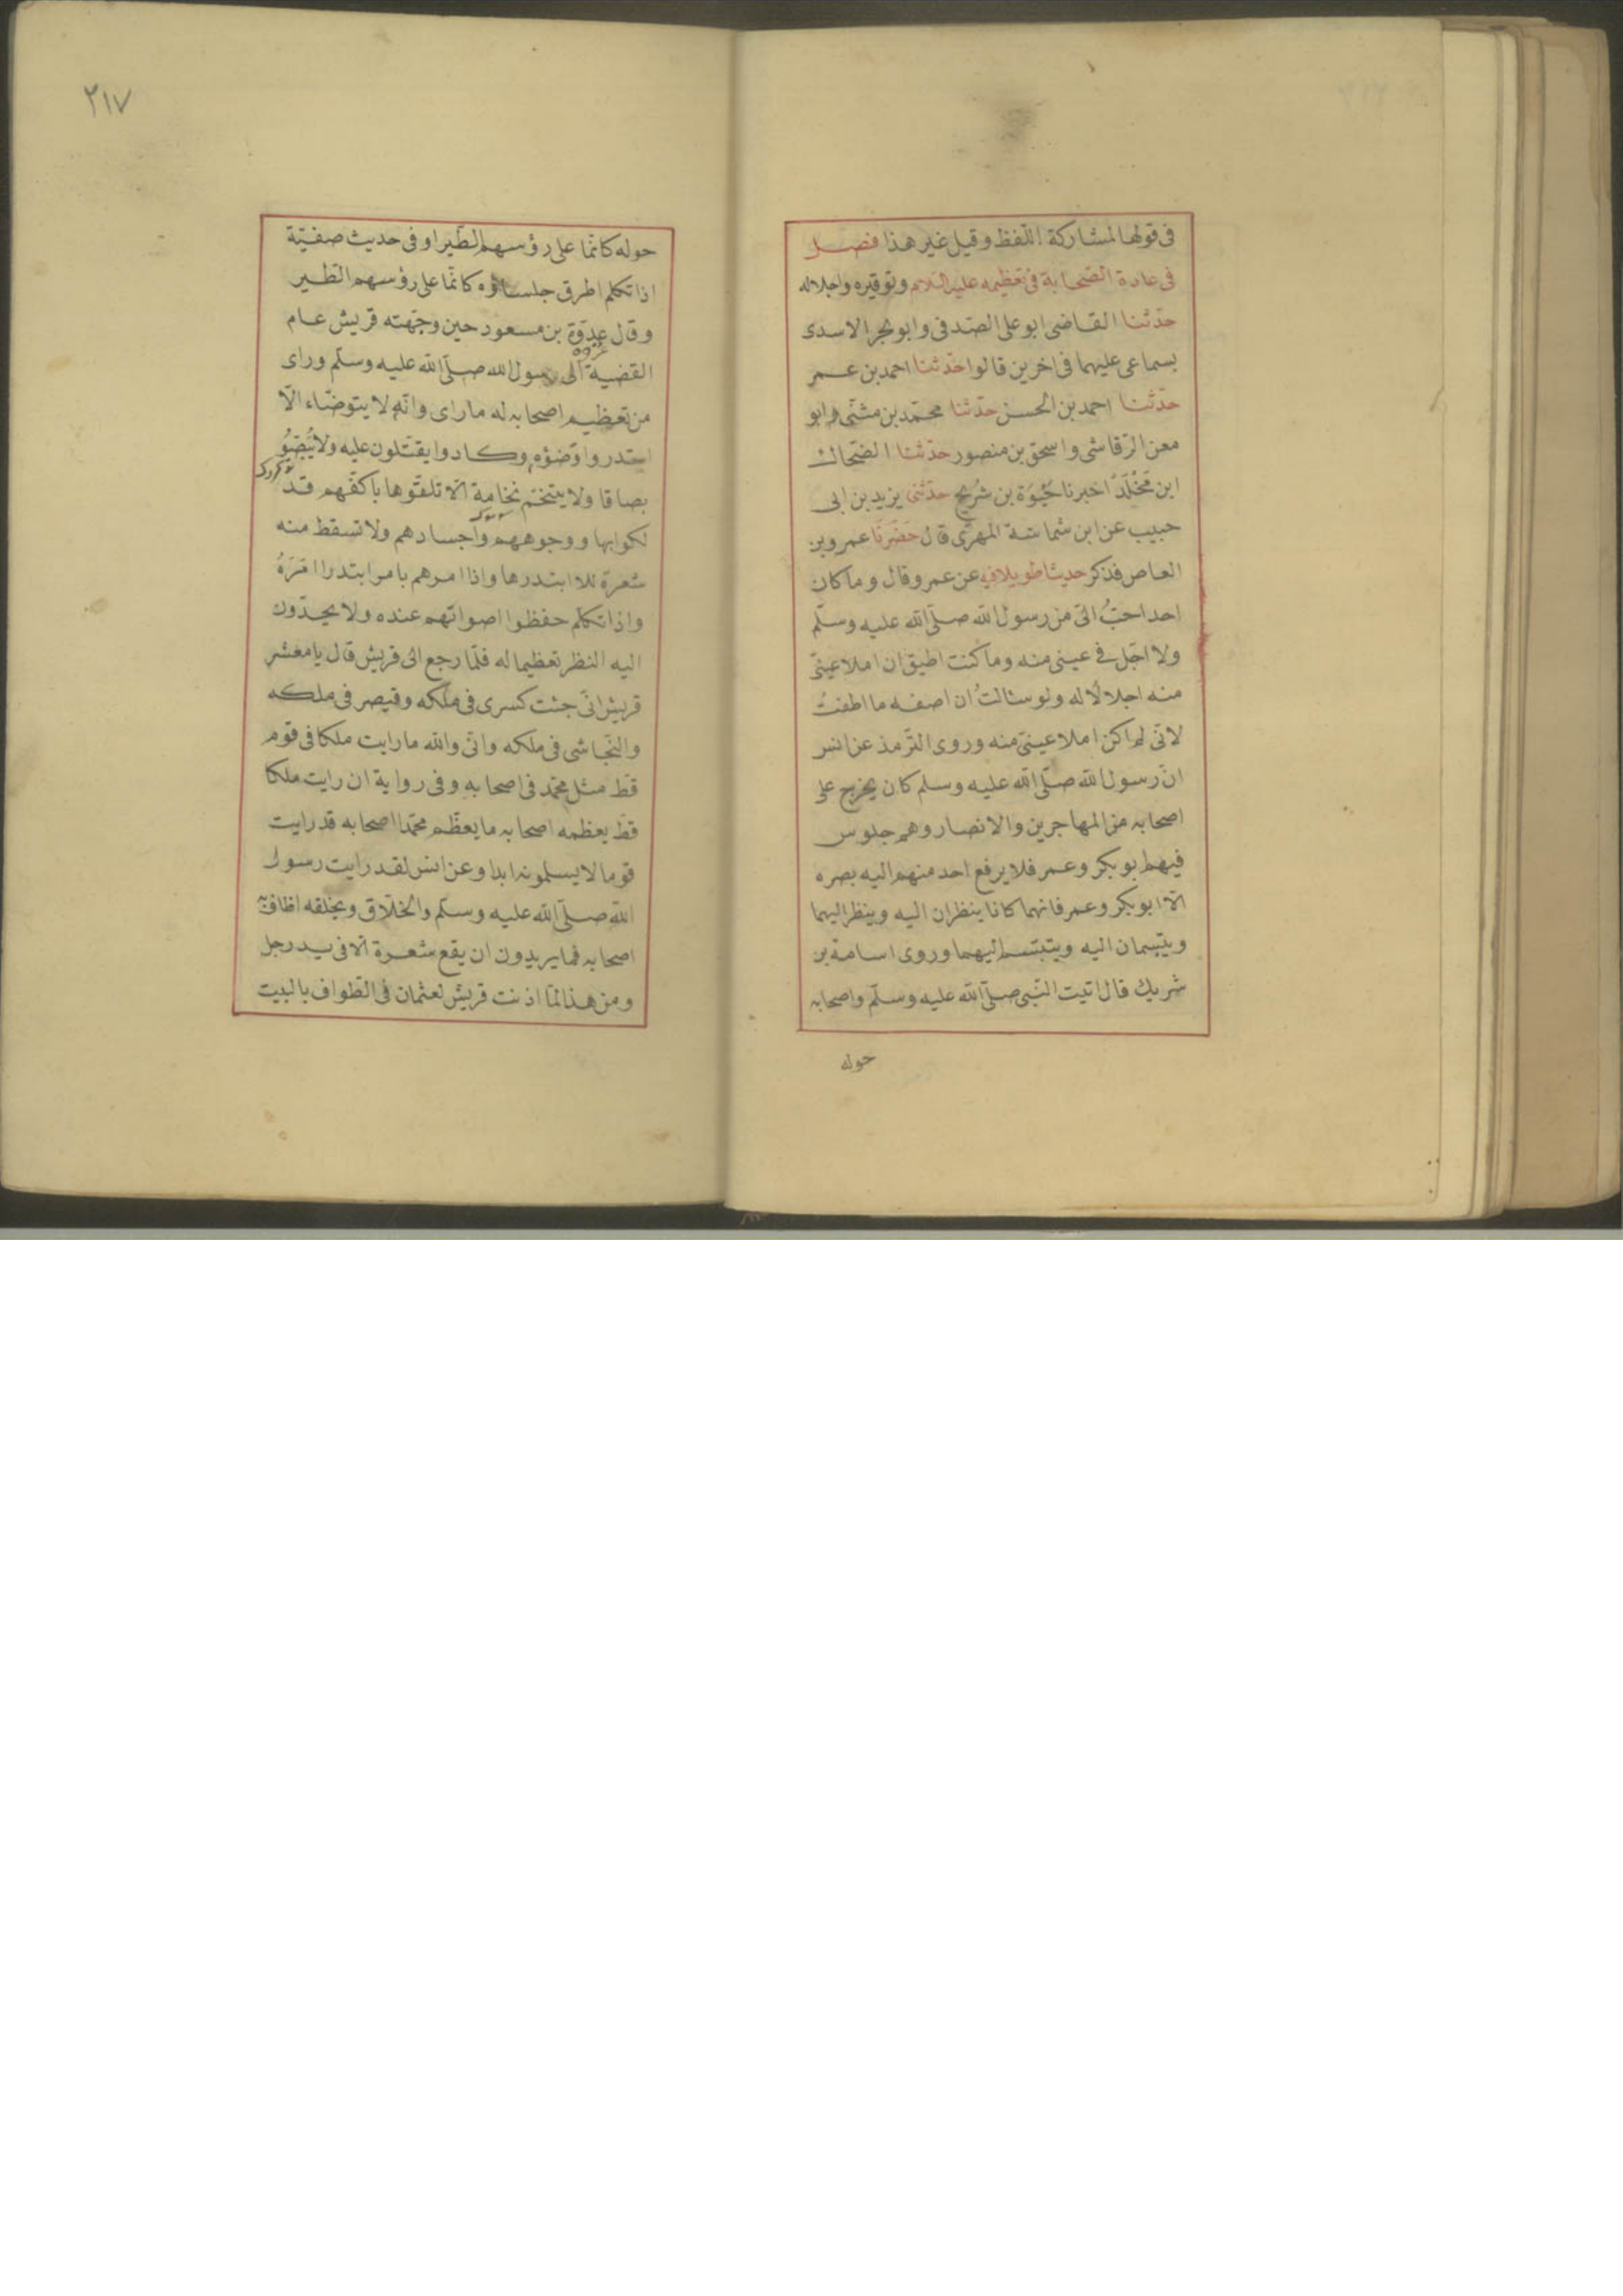 فى قولها لمشاركة اللفظ وقيل غير هذا فصل
فى عادة الصّحابة فى تعظيمه عليه السلام وتوقيره واجلاله
حدّثنا القاضى ابو على الصّدفى وابو بحر الاسدى
بسماعى عليهما فى اخرين قالوا حدّثنا احمد بن عمر
حدّثنا احمد بن الحسن حدّثنا محمّد بن مثنّى وابو
معن الرّقاشى واسحق بن منصور حدّثنا الضّحاك
ابن مَخْلَد اخبرنا حَيْوَة بن شُريح حدّثنى يزيد بن ابى
حبيب عن ابن شماسة المهرّى قال حَضَرْنَا عمرو بن
العاص فذكر حديثا طويلا فيه عن عمرو قال وما كان
احد احبُّ الىّ من رسول الله صلّى الله عليه وسلّم
ولا اجّل فى عينى منه وما كنت اطيق ان املا عينىّ
منه اجلالا له ولو سئالتُ ان اصفه ما اطقتُ
لانّى لم اكن املا عينىّ منه وروى التّرمذ عن انس
انّ رسول الله صلّى الله عليه وسلم كان يخرج على
اصحابه من المهاجرين والانصار وهم جلوس
فيهم ابو بكر وعمر فلا يرفع احد منهم اليه بصره
الّا ابو بكر وعمر فانهما كانا ينظران اليه وينظر اليهما
ويتبسمان اليه ويتبسّم اليهما وروى اسامة بن
شريك قال اتيت النّبى صلّى الله عليه وسلّم واصحابه
حوله
٢١٧
حوله كانّما على رؤسهم الطّير او فى حديث صفيّة
اذا تكلم اطرق جلساؤه كانّما على رؤسهم الطّير
وقال عدوَة بن مسعود حين وجّهته قريش عام
عروه
القضية الى رسول الله صلّى الله عليه وسلّم وراى
من تعظيم اصحابه له ما راى وانّه لا يتوضّاء الّا
ابتدروا وَضوؤه وكادوا يقتتلون عليه ولا يُبْصِقُ
بصاقا ولا يتنخّم نخامة الّا تلقّوها باكفّهم قد
لكوابها ووجوههم واجسادهم ولا تسقط منه
شعرة للا ابتدرها واذا امرهم بامر ابتدرا امَرَهُ
واذا تكلّم حفظوا اصواتّهم عنده ولا يحدّون
اليه النظر تعظيما له فلمّا رجع الى قريش قال يا معشر
قريش انّى جئت كسرى فى ملكه وقيصر فى ملكه
والنّجاشى فى ملكه وانّى والله ما رايت ملكا فى قوم
قطّ مثل محمّد فى اصحابه وفى رواية ان رايت ملكا
قطّ يعظمه اصحابه ما يعظّم محمّدا اصحابه قد رايت
قوما لا يسلمونه ابدا وعن انس لقد رايت رسول
الله صلّى الله عليه وسلّم والخلّاق ويخلقه اظافّ به
اصحابه فما يريدون ان يقع شعرة الّا فى يد رجل
ومن هذا لمّا اذنت قريش لعثمان فى الطّواف بالبيت